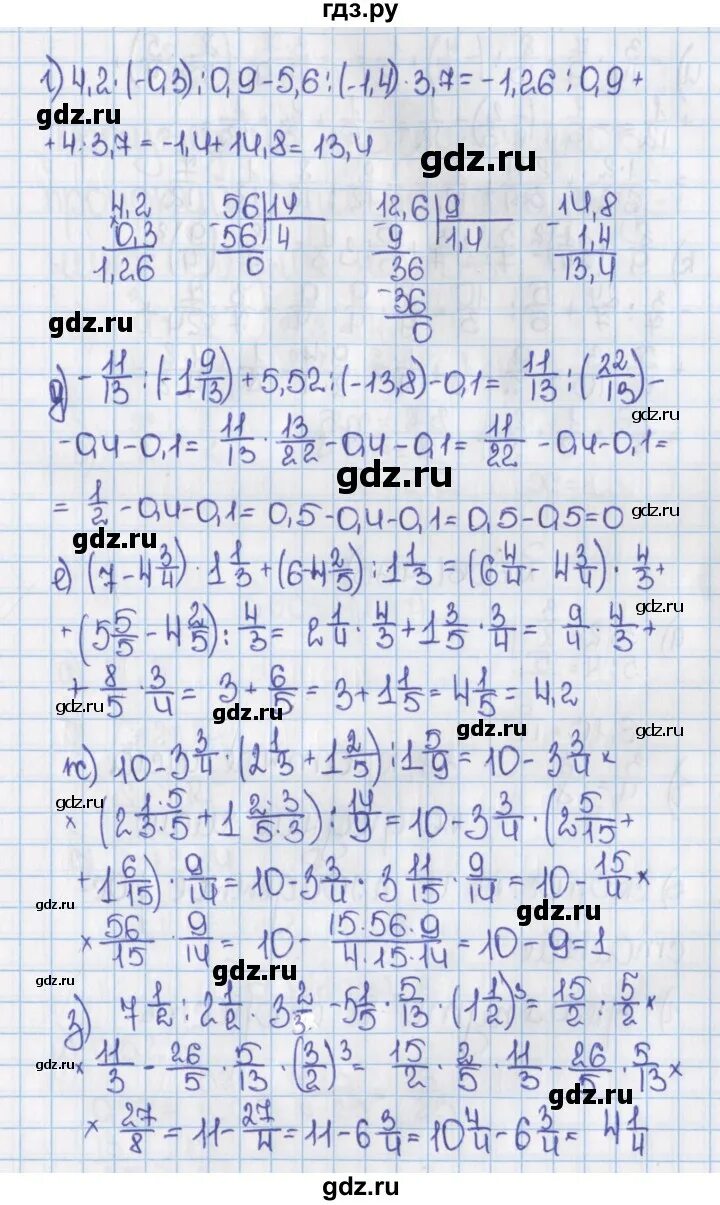 гдз.ру
г) 4,2·(-0,3):0,9-5,6:(-1,4)·3,7=-1,26:0,9+
gdz.ru
+4·3,7=-1,4+14,8=13,4
gdz.ru
4,2 56|14 12,6|9 14,8
0,3 -56|4 -9|1,4 -1,4
1,26 0 36 13,4
-36
gdz.ru 0
д) -11/13:(-1 9/13)+5,52:(-13,8)-0,1= 11/13:(22/13)-
gdz.ru
-0,4-0,1= 11/13·13/22-0,4-0,1= 11/22-0,4-0,1=
gdz.ru
= 1/2-0,4-0,1=0,5-0,4-0,1=0,5-0,5=0
gdz.ru
gdz.ru
е) (7-4 3/4)·1 1/3+(6-4 2/5):1 1/3=(6 4/4-4 3/4)·4/3+
gdz.ru
+(5 5/5-4 2/5):4/3= 2 1/4·4/3+1 3/5·3/4= 9/4·4/3+
+ 8/5·3/4= 3+6/5=3+1 1/5=4 1/5=4,2
gdz.ru
gdz.ru
gdz.ru
gdz.ru
ж) 10-3 3/4·(2 1/3+1 2/5):1 5/9=10-3 3/4×
×(2 1·5/3·5+1 2·3/5·3):14/9=10-3 3/4·(2 5/15+
+1 6/15)·9/14=10-3 3/4·3 11/15·9/14=10-15/4×
gdz.ru
gdz.ru
×56/15·9/14=10-15·56·9/4·15·14=10-9=1
gdz.ru
gdz.ru
з) 7 1/2:2 1/2·3 2/3-5 1/5·5/13·(1 1/2)³=15/2:5/2×
gdz.ru
×11/3-26/5·5/13·(3/2)³= 15/2·2/5·11/3-26/5·5/13×
gdz.ru
×27/8=11-27/4=11-6 3/4=10 4/4-6 3/4= 4 1/4
gdz.ru